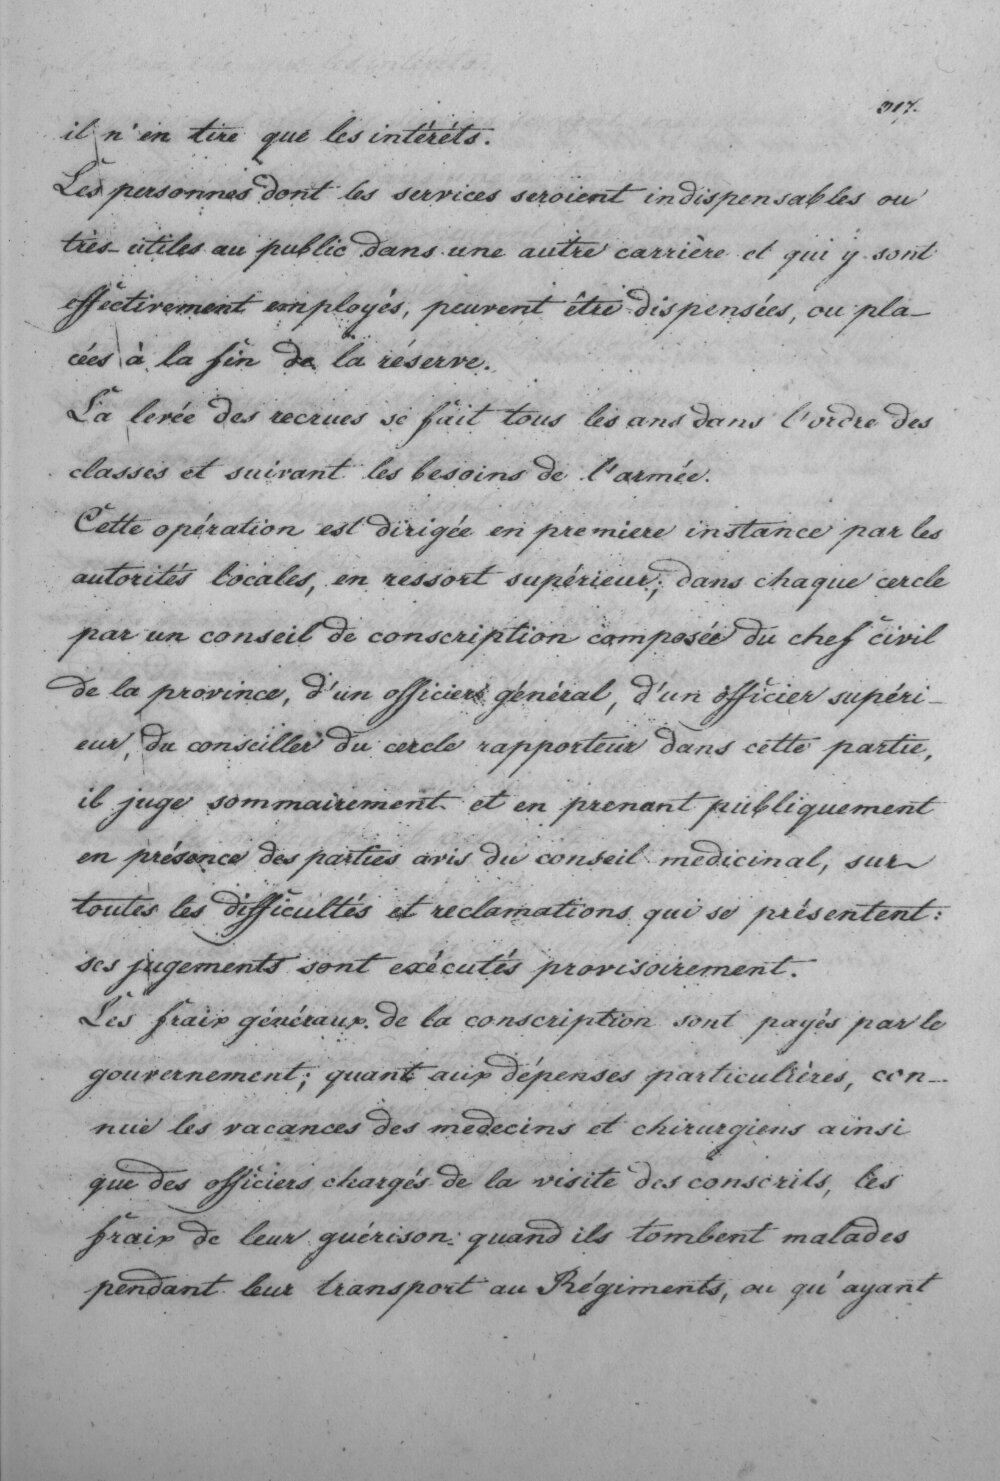 317.
il n'en tire que les intérêts.
Les personnes dont les services seroient indispensables ou
très-utiles au public dans une autre carrière et qui y sont
effectivement employés, peuvent être dispensées, ou pla-
cées à la fin de la réserve.
La levée des recrues se fait tous les ans dans l'ordre des
classes et suivant les besoins de l'armée.
Cette opération est dirigée en premiere instance par les
autorités locales, en ressort supérieur; dans chaque cercle
par un conseil de conscription composée du chef civil
de la province, d'un officier général, d'un officier supéri-
eur, du conseiller du cercle rapporteur dans cette partie,
il juge sommairement et en prenant publiquement
en présence des parties avis du conseil medicinal, sur
toutes les difficultés et reclamations qui se présentent:
ses jugements sont exécutés provisoirement.
Les fraix généraux de la conscription sont payés par le
gouvernement; quant aux dépenses particulières, con-
nue les vacances des medecins et chirurgiens ainsi
que des officiers chargés de la visite des conscrits, les
fraix de leur guérison quand ils tombent malades
pendant leur transport au Régiments, ou qu'ayant